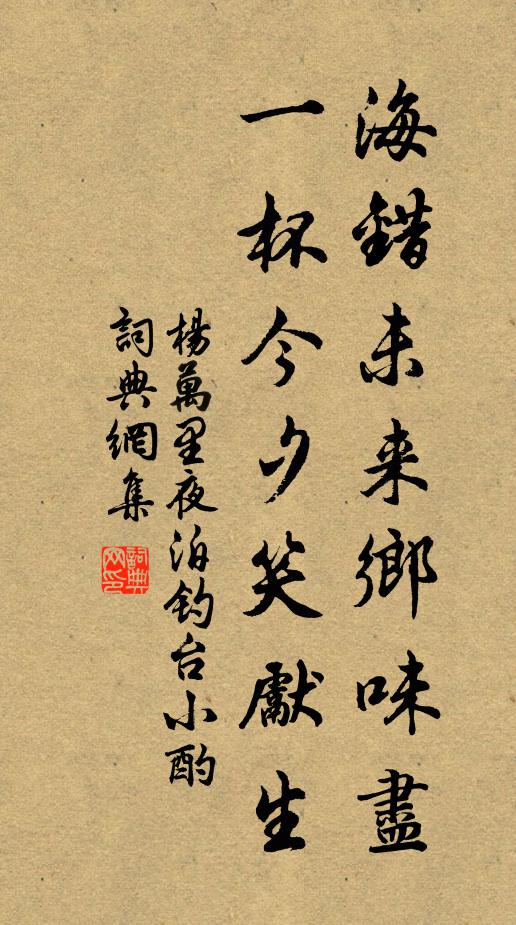 海錯未来鄉味盡
一杯今夕笑獻生
楊萬里夜泊釣台小酌
詞典網集
詞典网印